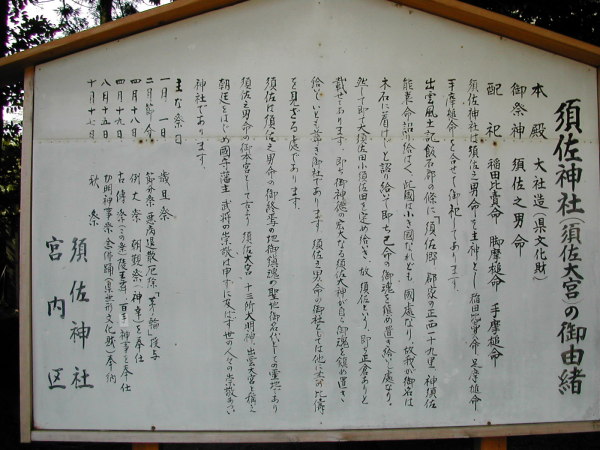 須佐神社(須佐大宮)の御由緒
本殿 大社造(県文化財)
御祭神 須佐之男命
配祀 稲田比売命 脚摩槌命 手摩槌命
須佐神社は須佐之男命を主神とし 稲田比売命 足摩槌命
手摩槌命を合せて御祀してあります。
出雲風土記飯石郡の條に「須佐郷、郡家の正西一十九里、神須佐
能袁命詔り給はく、此國は小さき國だれども、國處なり、故我が御名は
木石に著けじと詔り給いて即ち己命の御魂を鎮め置き給いし處なり、
然して即ち大須佐田小須佐田を定め給いき、故、須佐という、即ち正倉ありと
載せてあります 即ち御神徳の宏大なる須佐大神が自ら御魂を鎮め置き
給いし いとも尊き御社であります。須佐之男命の御社としては他に
を見ざる處であります。
須佐は須佐之男命の御終焉の地御鎮魂の聖地御名代としての霊地であり
須佐之男命の御本宮として古より須佐大宮、十三所大明神、出雲大宮と稱え
朝廷をはじめ國守藩主武将の崇敬は申すに及ばず世の人々の崇敬あつい
神社であります。
主な祭日
一月一日 歳旦祭
二月節分 節分祭 悪病退散厄除「茅の輪」授与
四月十八日 例大祭 朝覲祭(神幸)を奉仕
四月十九日 古傳祭
八月十五日 切明神事祭 念佛踊(無形文化財)奉納
十月十七日 秋祭
須佐神社
宮内区